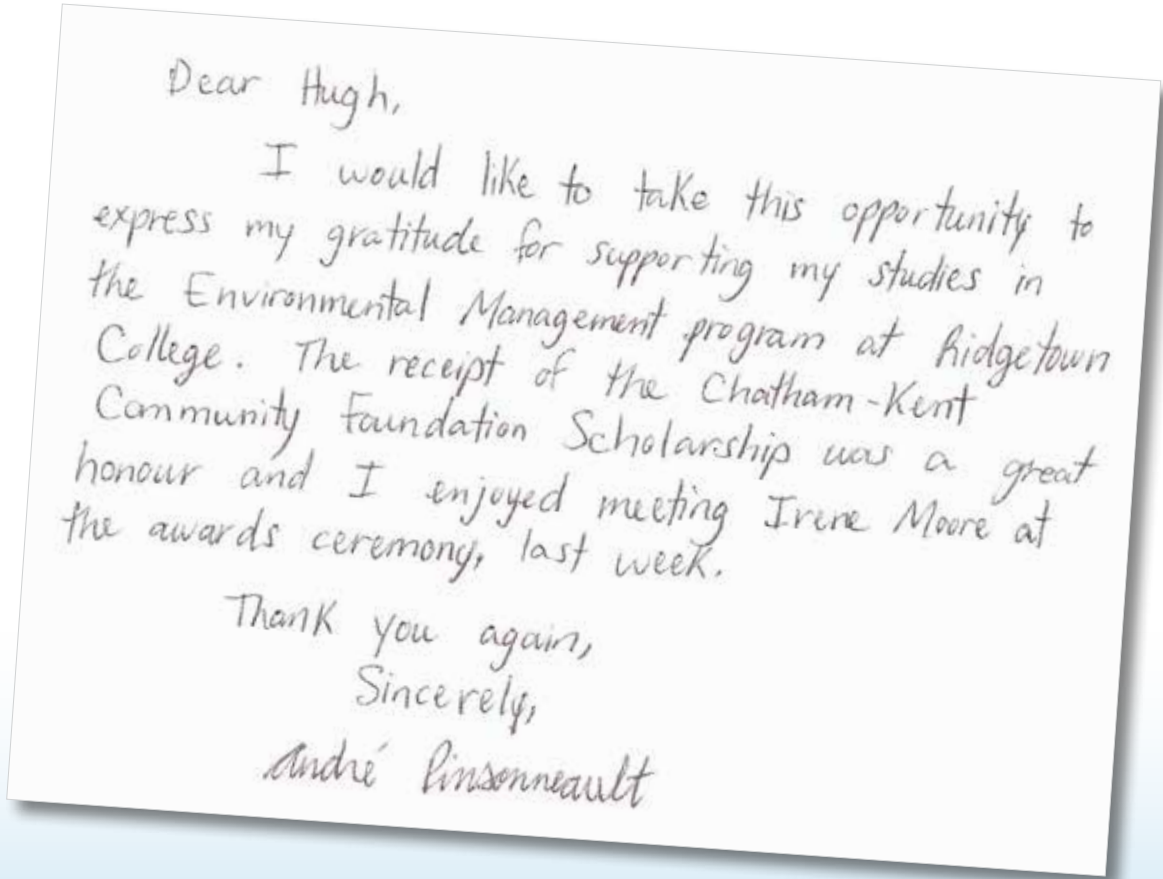 Dear Hugh,
I would like to take this opportunity to
express my gratitude for supporting my studies in
the Environmental Management program at Ridgetown
College. The receipt of the Chatham-Kent
Community Foundation Scholarship was a great
honour and I enjoyed meeting Irene Moore at
the awards ceremony, last week.
Thank you again,
Sincerely,
André Pinsonneault